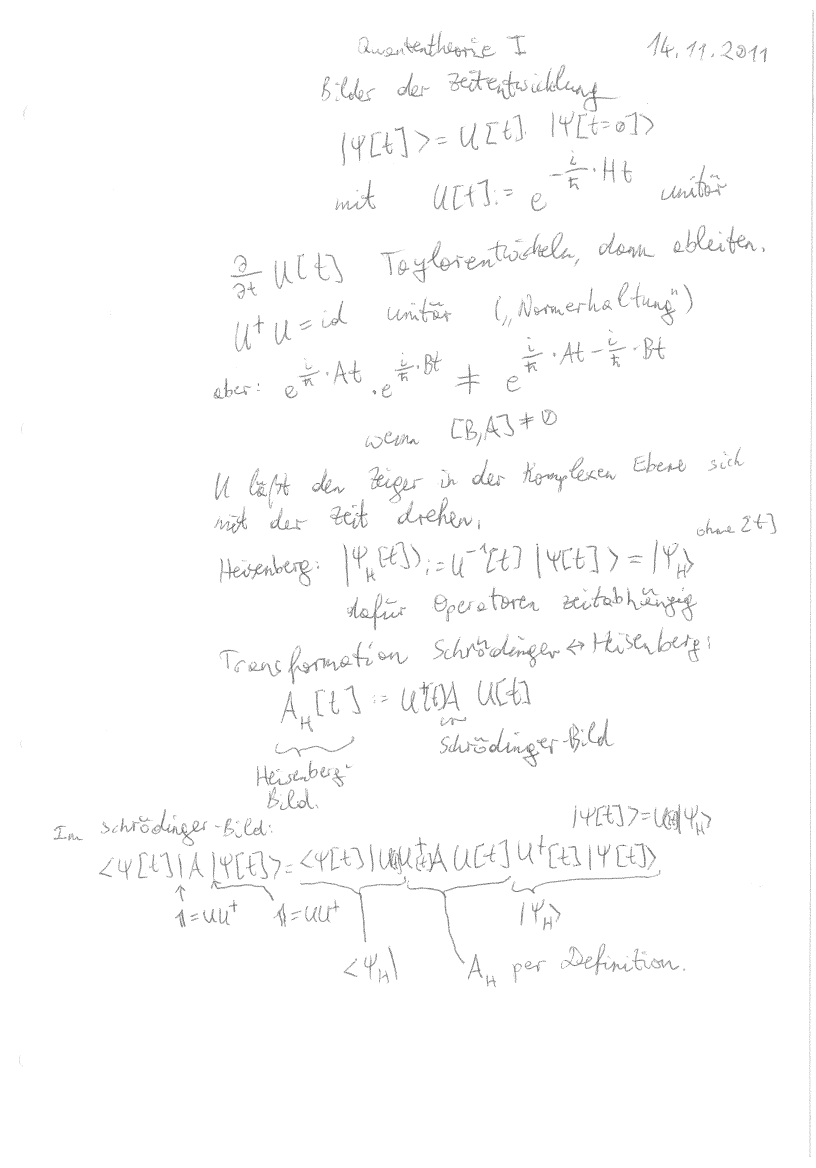 Quantentheorie I 14.11.2011
Bilder der Zeitentwicklung
|Ψ[t]> = U[t] |Ψ[t=0]>
mit U[t] := e^{-i/ħ·Ht} unitär
∂/∂t U[t] Taylorentwickeln, dann ableiten.
U⁺U = id unitär („Normerhaltung")
aber: e^{i/ħ·At}·e^{i/ħ·Bt} ≠ e^{i/ħ·At-i/ħ·Bt}
wenn [B,A] ≠ 0
U läßt den Zeiger in der Komplexen Ebene sich
mit der Zeit drehen.
Heisenberg: |Ψ_H[t]> := U⁻¹[t] |Ψ[t]> = |Ψ_H> ohne [t]
dafür Operatoren zeitabhängig
Transformation Schrödinger ↔ Heisenberg:
A_H[t] := U⁺[t]A U[t]
Schrödinger-Bild
Heisenberg-
Bild.
Im Schrödinger-Bild: |Ψ[t]> = U[t]|Ψ_H>
<Ψ[t]|A|Ψ[t]> = <Ψ[t]|U[t]U⁺[t]A U[t] U⁺[t]|Ψ[t]>
↑ 𝟙=UU⁺ 𝟙=UU⁺ |Ψ_H>
<Ψ_H| A_H per Definition.